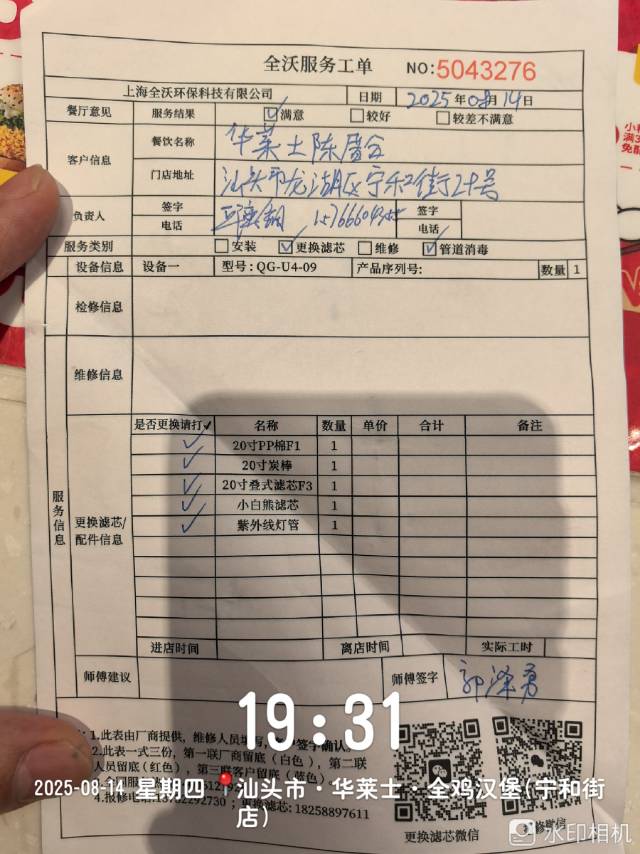 全沃服务工单 NO:5043276
上海全沃环保科技有限公司 日期 2025年08月14日
餐厅意见 服务结果 ☑满意 □较好 □较差不满意
客户信息 餐饮名称 华莱士陈厝合
门店地址 汕头市龙湖区宁和街24号
负责人 签字 签字
电话 电话
服务类别 □安装 ☑更换滤芯 □维修 ☑管道消毒
设备信息 设备一 型号:QG-U4-09 产品序列号: 数量 1
检修信息
维修信息
服务信息
更换滤芯/配件信息
是否更换请打✓ 名称 数量 单价 合计 备注
✓ 20寸PP棉F1 1
✓ 20寸炭棒 1
✓ 20寸叠式滤芯F3 1
✓ 小白熊滤芯 1
✓ 紫外线灯管 1
进店时间 离店时间 实际工时
师傅建议 师傅签字
19:31
1.此表由厂商提供，维修人员填写，签字确认。
2.此表一式三份，第一联厂商留底（白色），第二联
人员留底（红色），第三联客户留底（蓝色）
2025-08-14 星期四 汕头市·华莱士·全鸡汉堡(宁和街
店)
更换滤芯:18258897611
更换滤芯微信
水印相机